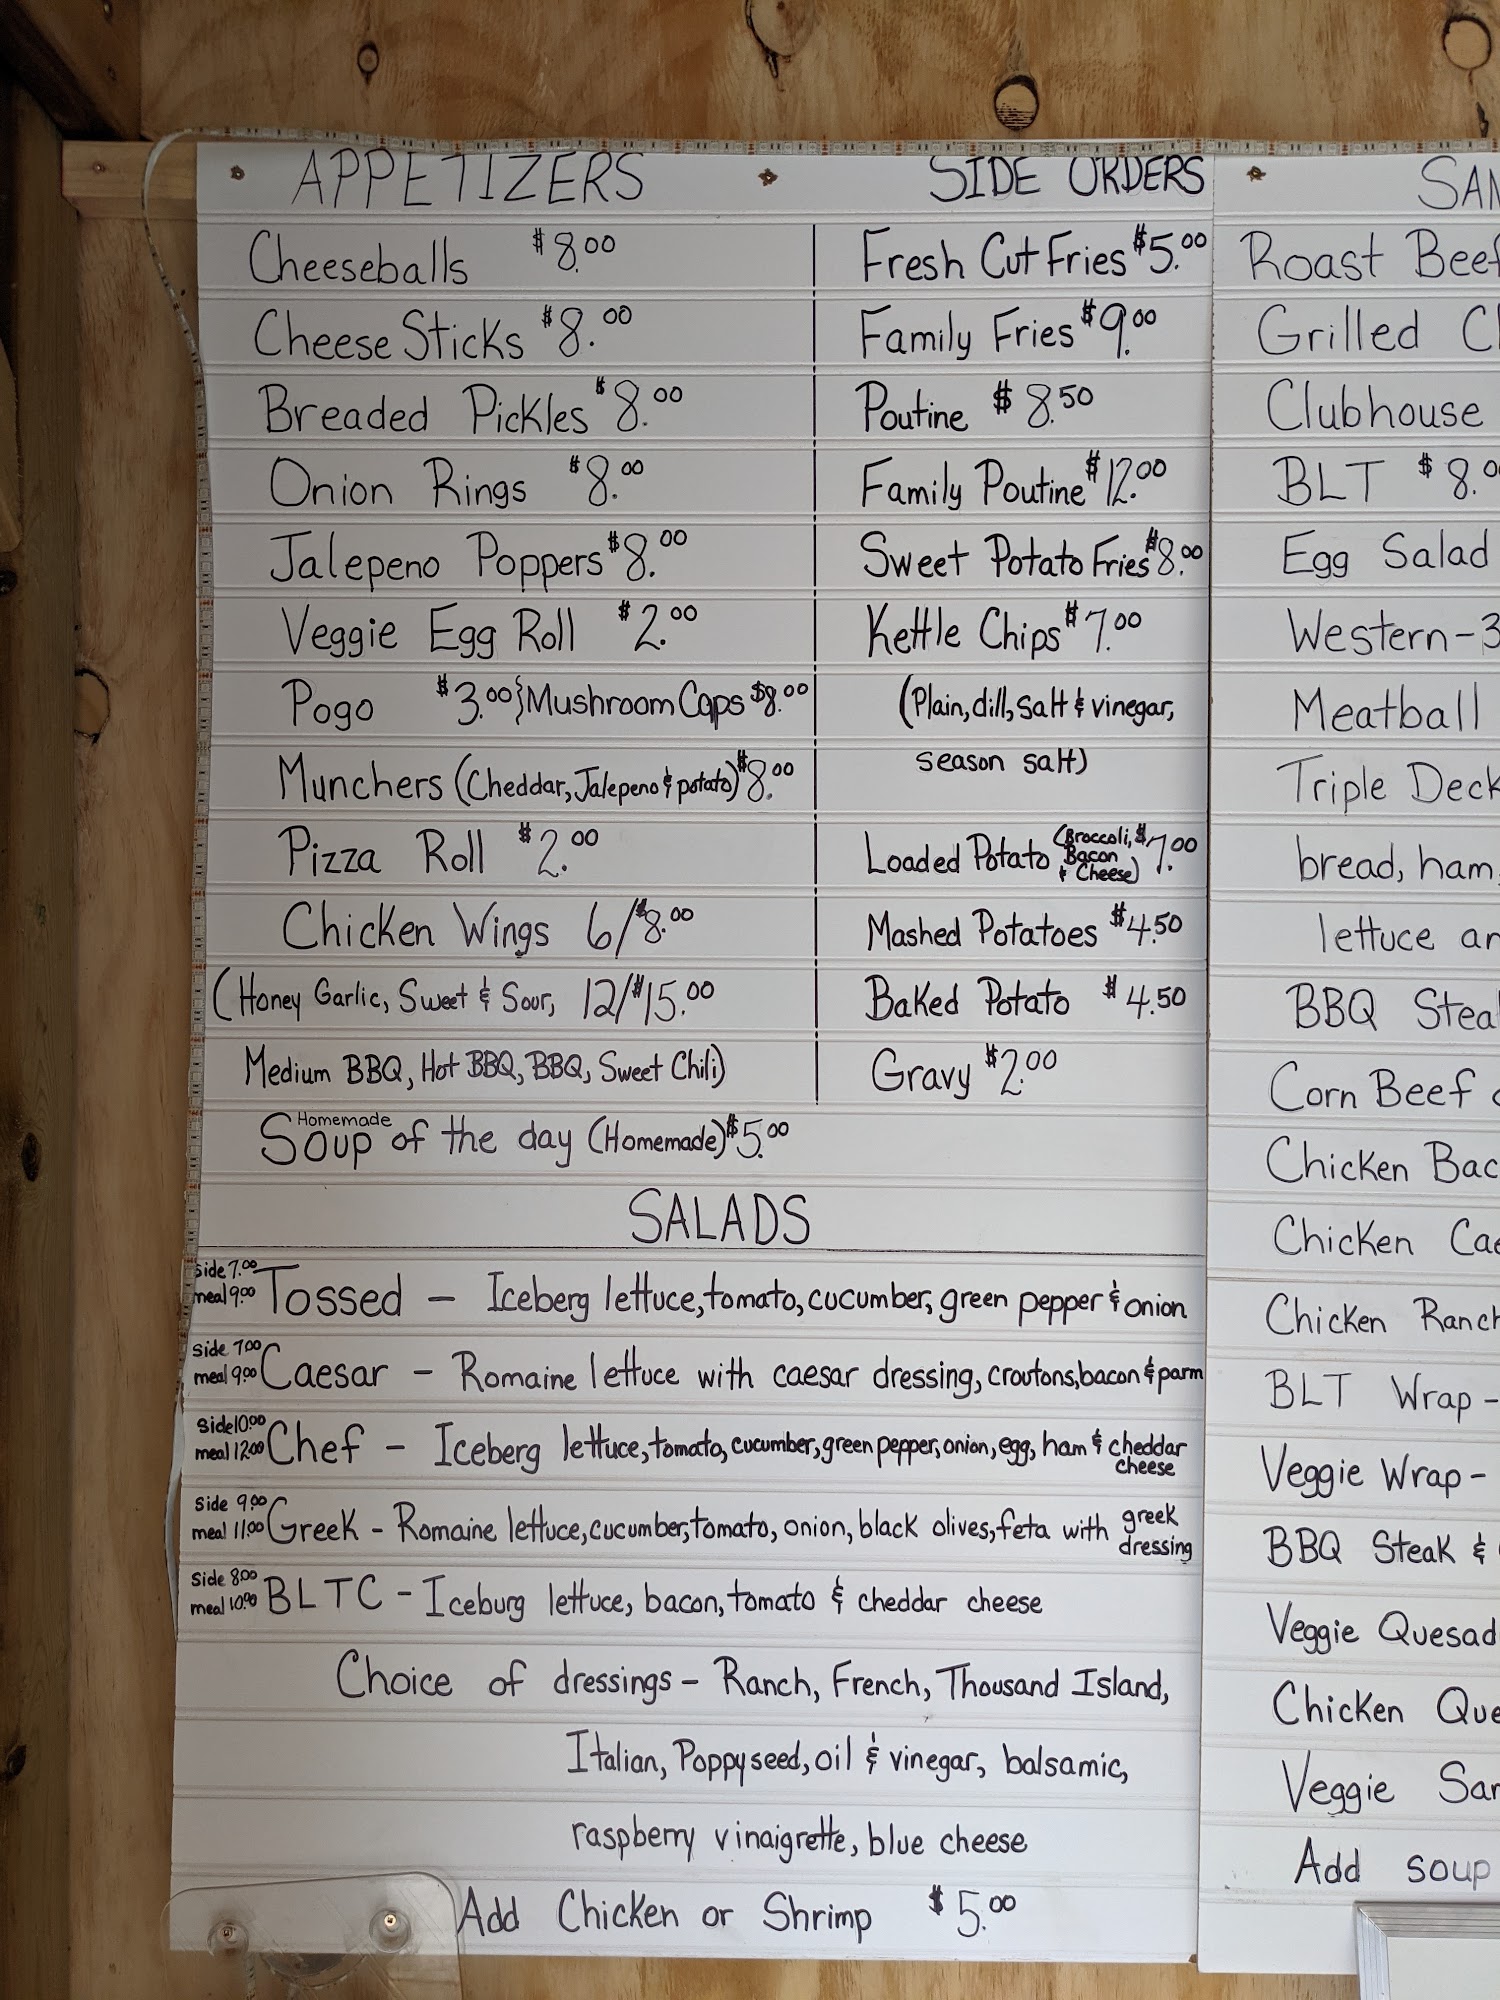 APPETIZERS
Cheeseballs $8.00
Cheese Sticks $8.00
Breaded Pickles $8.00
Onion Rings $8.00
Jalepeno Poppers $8.00
Veggie Egg Roll $2.00
Pogo $3.00 } Mushroom Caps $8.00
Munchers (Cheddar, Jalepeno & potato) $8.00
Pizza Roll $2.00
Chicken Wings 6/$8.00
(Honey Garlic, Sweet & Sour, 12/$15.00
Medium BBQ, Hot BBQ, BBQ, Sweet Chili)
Homemade
Soup of the day (Homemade) $5.00
SIDE ORDERS
Fresh Cut Fries $5.00
Family Fries $9.00
Poutine $8.50
Family Poutine $12.00
Sweet Potato Fries $8.00
Kettle Chips $7.00
(Plain, dill, salt & vinegar,
season salt)
Loaded Potato (Broccoli, Bacon & Cheese) $7.00
Mashed Potatoes $4.50
Baked Potato $4.50
Gravy $2.00
SALADS
side 7.00
meal 9.00 Tossed - Iceberg lettuce, tomato, cucumber, green pepper & onion
side 7.00
meal 9.00 Caesar - Romaine lettuce with caesar dressing, croutons, bacon & parm
side 10.00
meal 12.00 Chef - Iceberg lettuce, tomato, cucumber, green pepper, onion, egg, ham & cheddar cheese
side 9.00
meal 11.00 Greek - Romaine lettuce, cucumber, tomato, onion, black olives, feta with greek dressing
side 8.00
meal 10.00 BLTC - Iceburg lettuce, bacon, tomato & cheddar cheese
Choice of dressings - Ranch, French, Thousand Island,
Italian, Poppyseed, oil & vinegar, balsamic,
raspberry vinaigrette, blue cheese
Add Chicken or Shrimp $5.00
SAN
Roast Beef
Grilled C
Clubhouse
BLT $8.0
Egg Salad
Western-3
Meatball
Triple Deck
bread, ham,
lettuce an
BBQ Steak
Corn Beef
Chicken Bac
Chicken Cae
Chicken Ranch
BLT Wrap -
Veggie Wrap -
BBQ Steak &
Veggie Quesad
Chicken Que
Veggie San
Add soup